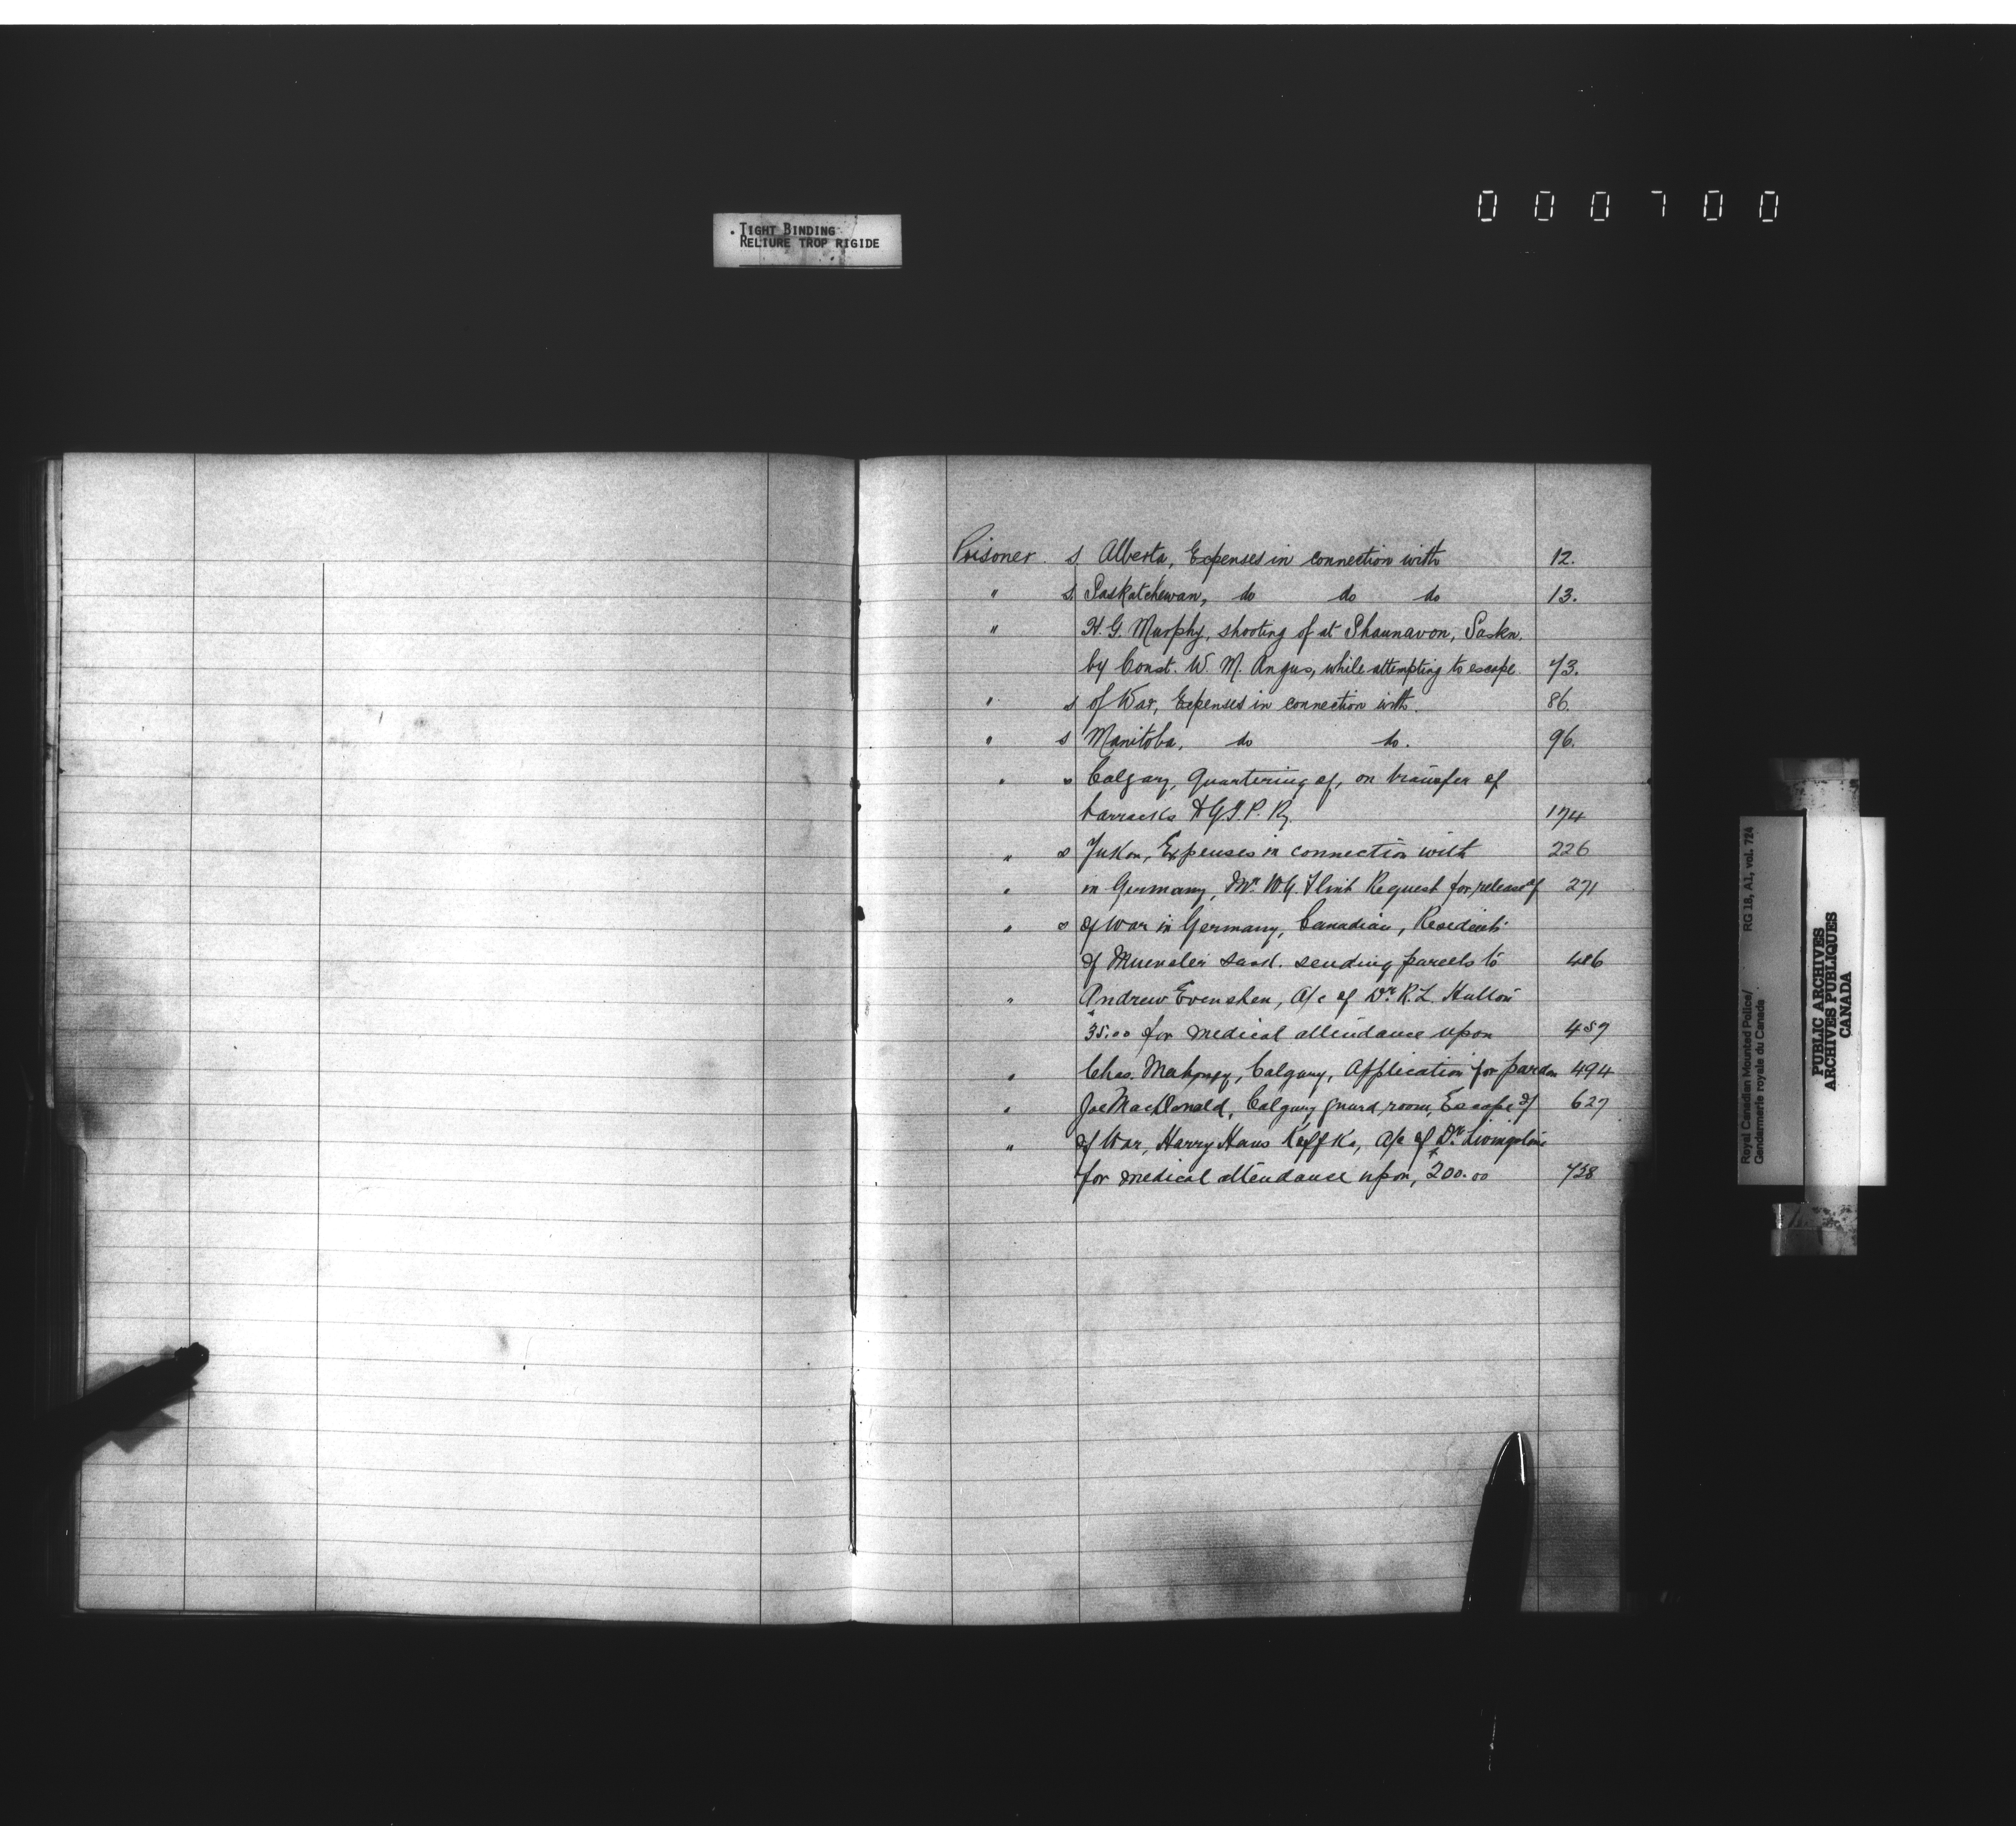 000700
TIGHT BINDING
RELIURE TROP RIGIDE
Prisoner s. Alberta, Expenses in connection with 12.
" s. Saskatchewan, do do do 13.
" H. G. Murphy, shooting of at Shaunavon, Saskn.
by Const. W. M. Angus, while attempting to escape. 73.
" s of War, Expenses in connection with. 86.
" s Manitoba, do do. 96.
" s Calgary, Quartering of, on transfer of
barracks to G.T.P. Ry. 174
" s Yukon, Expenses in connection with 226
" in Germany, Mr. W.G. Flint Request for release of 271
" s of War in Germany, Canadian, Residents
of Muenster Sask. sending parcels to 486
" Andrew Evenshen, A/c of Dr. R.L. Hutton
$35.00 for medical attendance upon
" Chas. Mahoney, Calgary, Application for pardon 494
" Joe MacDonald, Calgary guard room, Escape of 627
" of War, Harry Hans Keffka, A/c of Dr. Livingstone
for medical attendance upon, $200.00 738
Royal Canadian Mounted Police/
Gendarmerie royale du Canada
RG 18, A1, vol. 724
PUBLIC ARCHIVES
ARCHIVES PUBLIQUES
CANADA